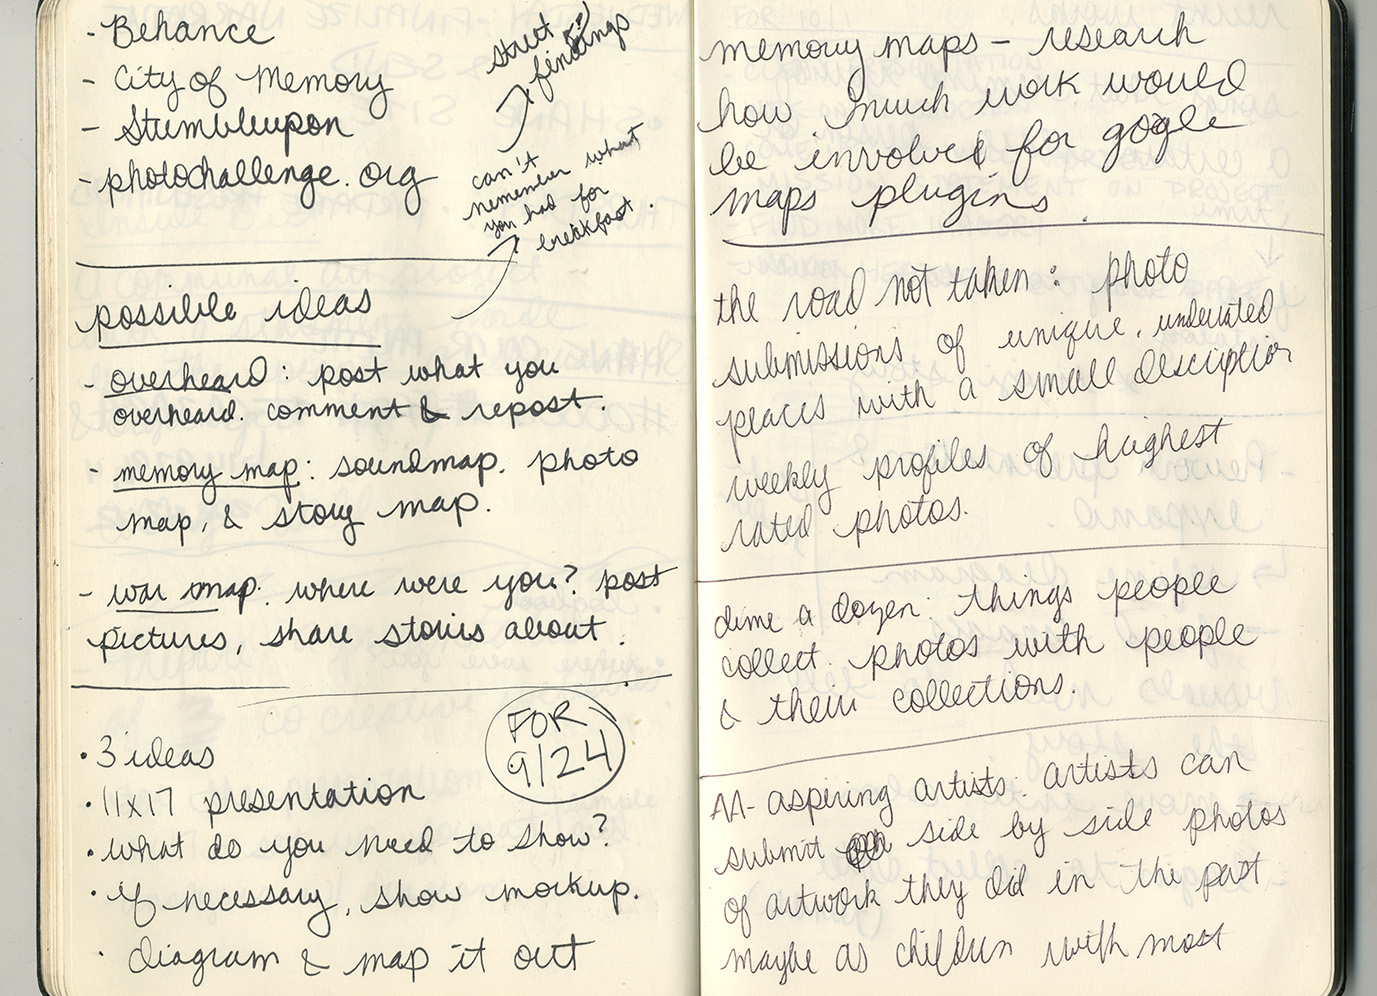 - Behance
- City of Memory
- Stumbleupon
- photochallenge.org
street
findings
can't
remember what
you had for
breakfast.
possible ideas
- overheard: post what you
overheard. comment & repost.
- memory map: soundmap. photo
map, & story map.
- war map. where were you? post
pictures, share stories about.
FOR
9/24
• 3 ideas
• 11x17 presentation
• what do you need to show?
• if necessary, show mockup.
• diagram & map it out
memory maps - research
how much work would
be involved for google
maps plugins.
the road not taken: photo
submissions of unique, underrated
places with a small description
weekly profiles of highest
rated photos.
dime a dozen: things people
collect. photos with people
& their collections.
AA- aspiring artists: artists can
submit side by side photos
of artwork they did in the past,
maybe as children with most